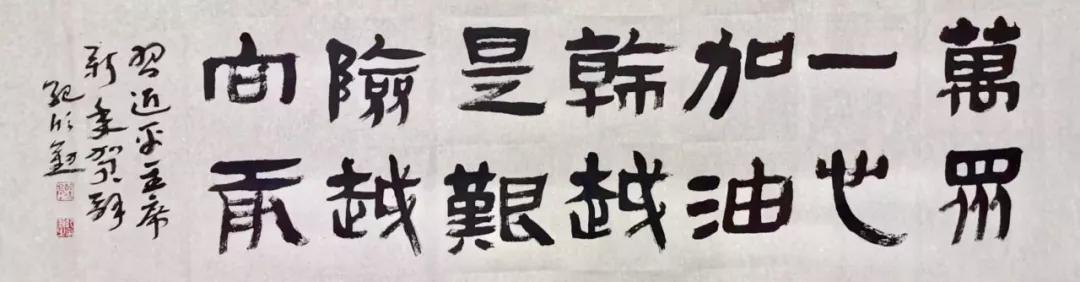 萬眾
一心
加油
幹越
是艱
險越
向前
習近平主席
新年賀辭